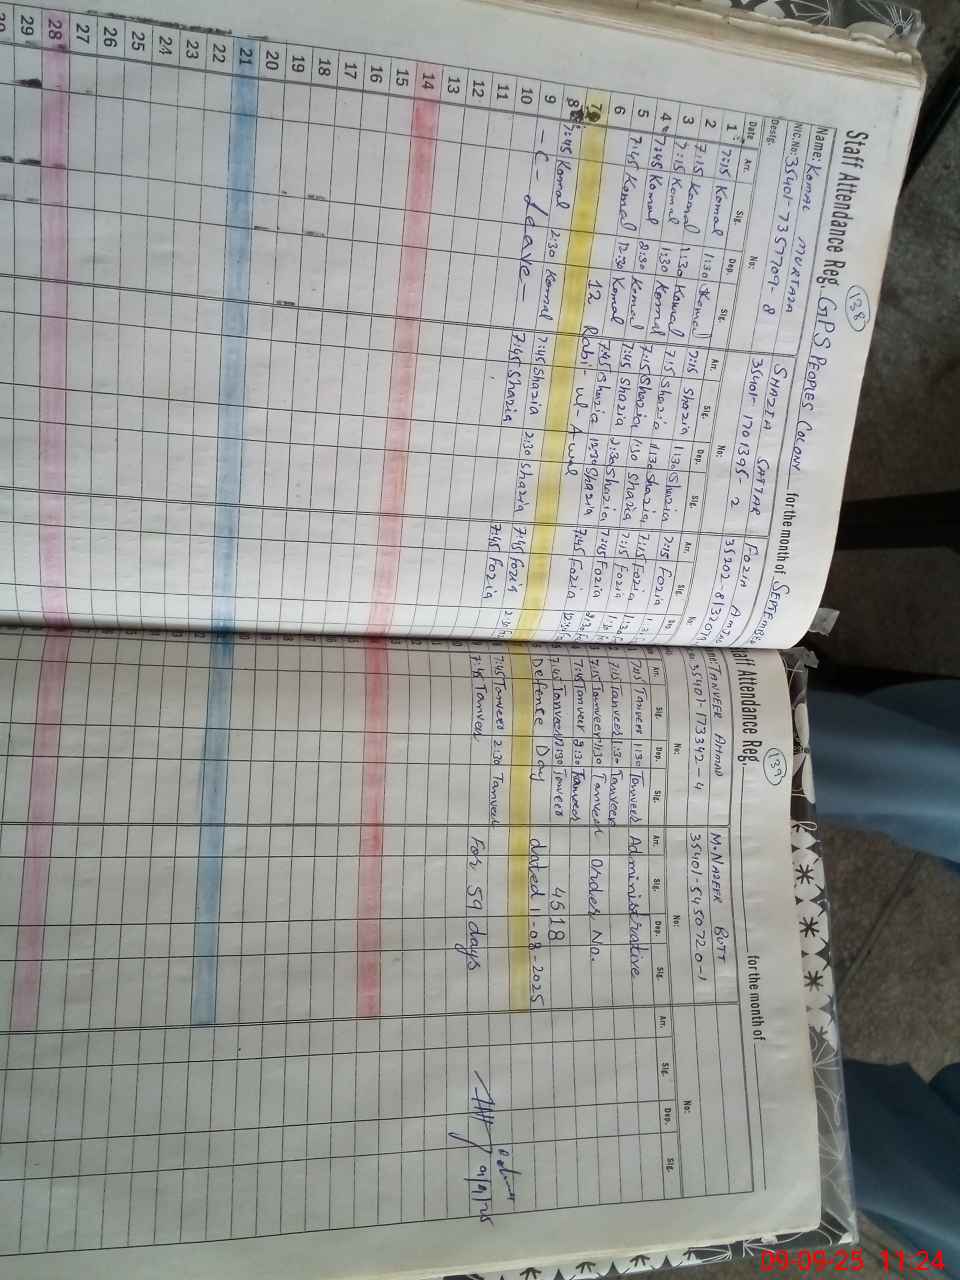 138
Staff Attendance Reg. GPS PEOPLES COLONY for the month of SEPTEMBER
Name: KOMAL MURTAZA SHAZIA SATTAR FOZIA
NIC.No: 35401-7357709-8 35401-1701395-2 35202-8132079
Desig. No: No: No:
Date Arr. Sig. Dep. Sig. Arr. Sig. Dep. Sig. Arr. Sig.
1 7:15 Komal 1:30 Komal 7:15 Shazia 1:30 Shazia 7:15 Fozia
2 7:15 Komal 1:30 Komal 7:15 Shazia 1:30 Shazia 7:15 Fozia
3 7:15 Komal 1:30 Komal 7:15 Shazia 1:30 Shazia 7:15 Fozia
4 7:45 Komal 2:30 Komal 7:45 Shazia 2:30 Shazia 7:45 Fozia
5 7:45 Komal 12:30 Komal 7:45 Shazia 12:30 Shazia 7:45 Fozia
6 12 Rabi-ul-Awal
7
8 7:45 Komal 2:30 Komal 7:45 Shazia 2:30 Shazia 7:45 Fozia
9 - C - Leave - 7:45 Shazia 7:45 Fozia
10
11
12
13
14
15
16
17
18
19
20
21
22
23
24
25
26
27
28
29
139
Staff Attendance Reg. for the month of
TANVEER AHMAD M. NAZEER BUTT
35401-173342-4 35401-5450720-1
No: No: No:
Arr. Sig. Dep. Sig. Arr. Sig. Dep. Sig. Arr. Sig. Dep. Sig.
7:15 Tanveer 1:30 Tanveer Administrative
7:15 Tanveer 1:30 Tanveer
7:15 Tanveer 1:30 Tanveer Order No.
7:45 Tanveer 2:30 Tanveer
7:45 Tanveer 12:30 Tanveer 4518
Defense Day dated 1-08-2025
7:45 Tanveer 2:30 Tanveer
7:45 Tanveer For 59 days
9/9/25
09-09-25 11:24